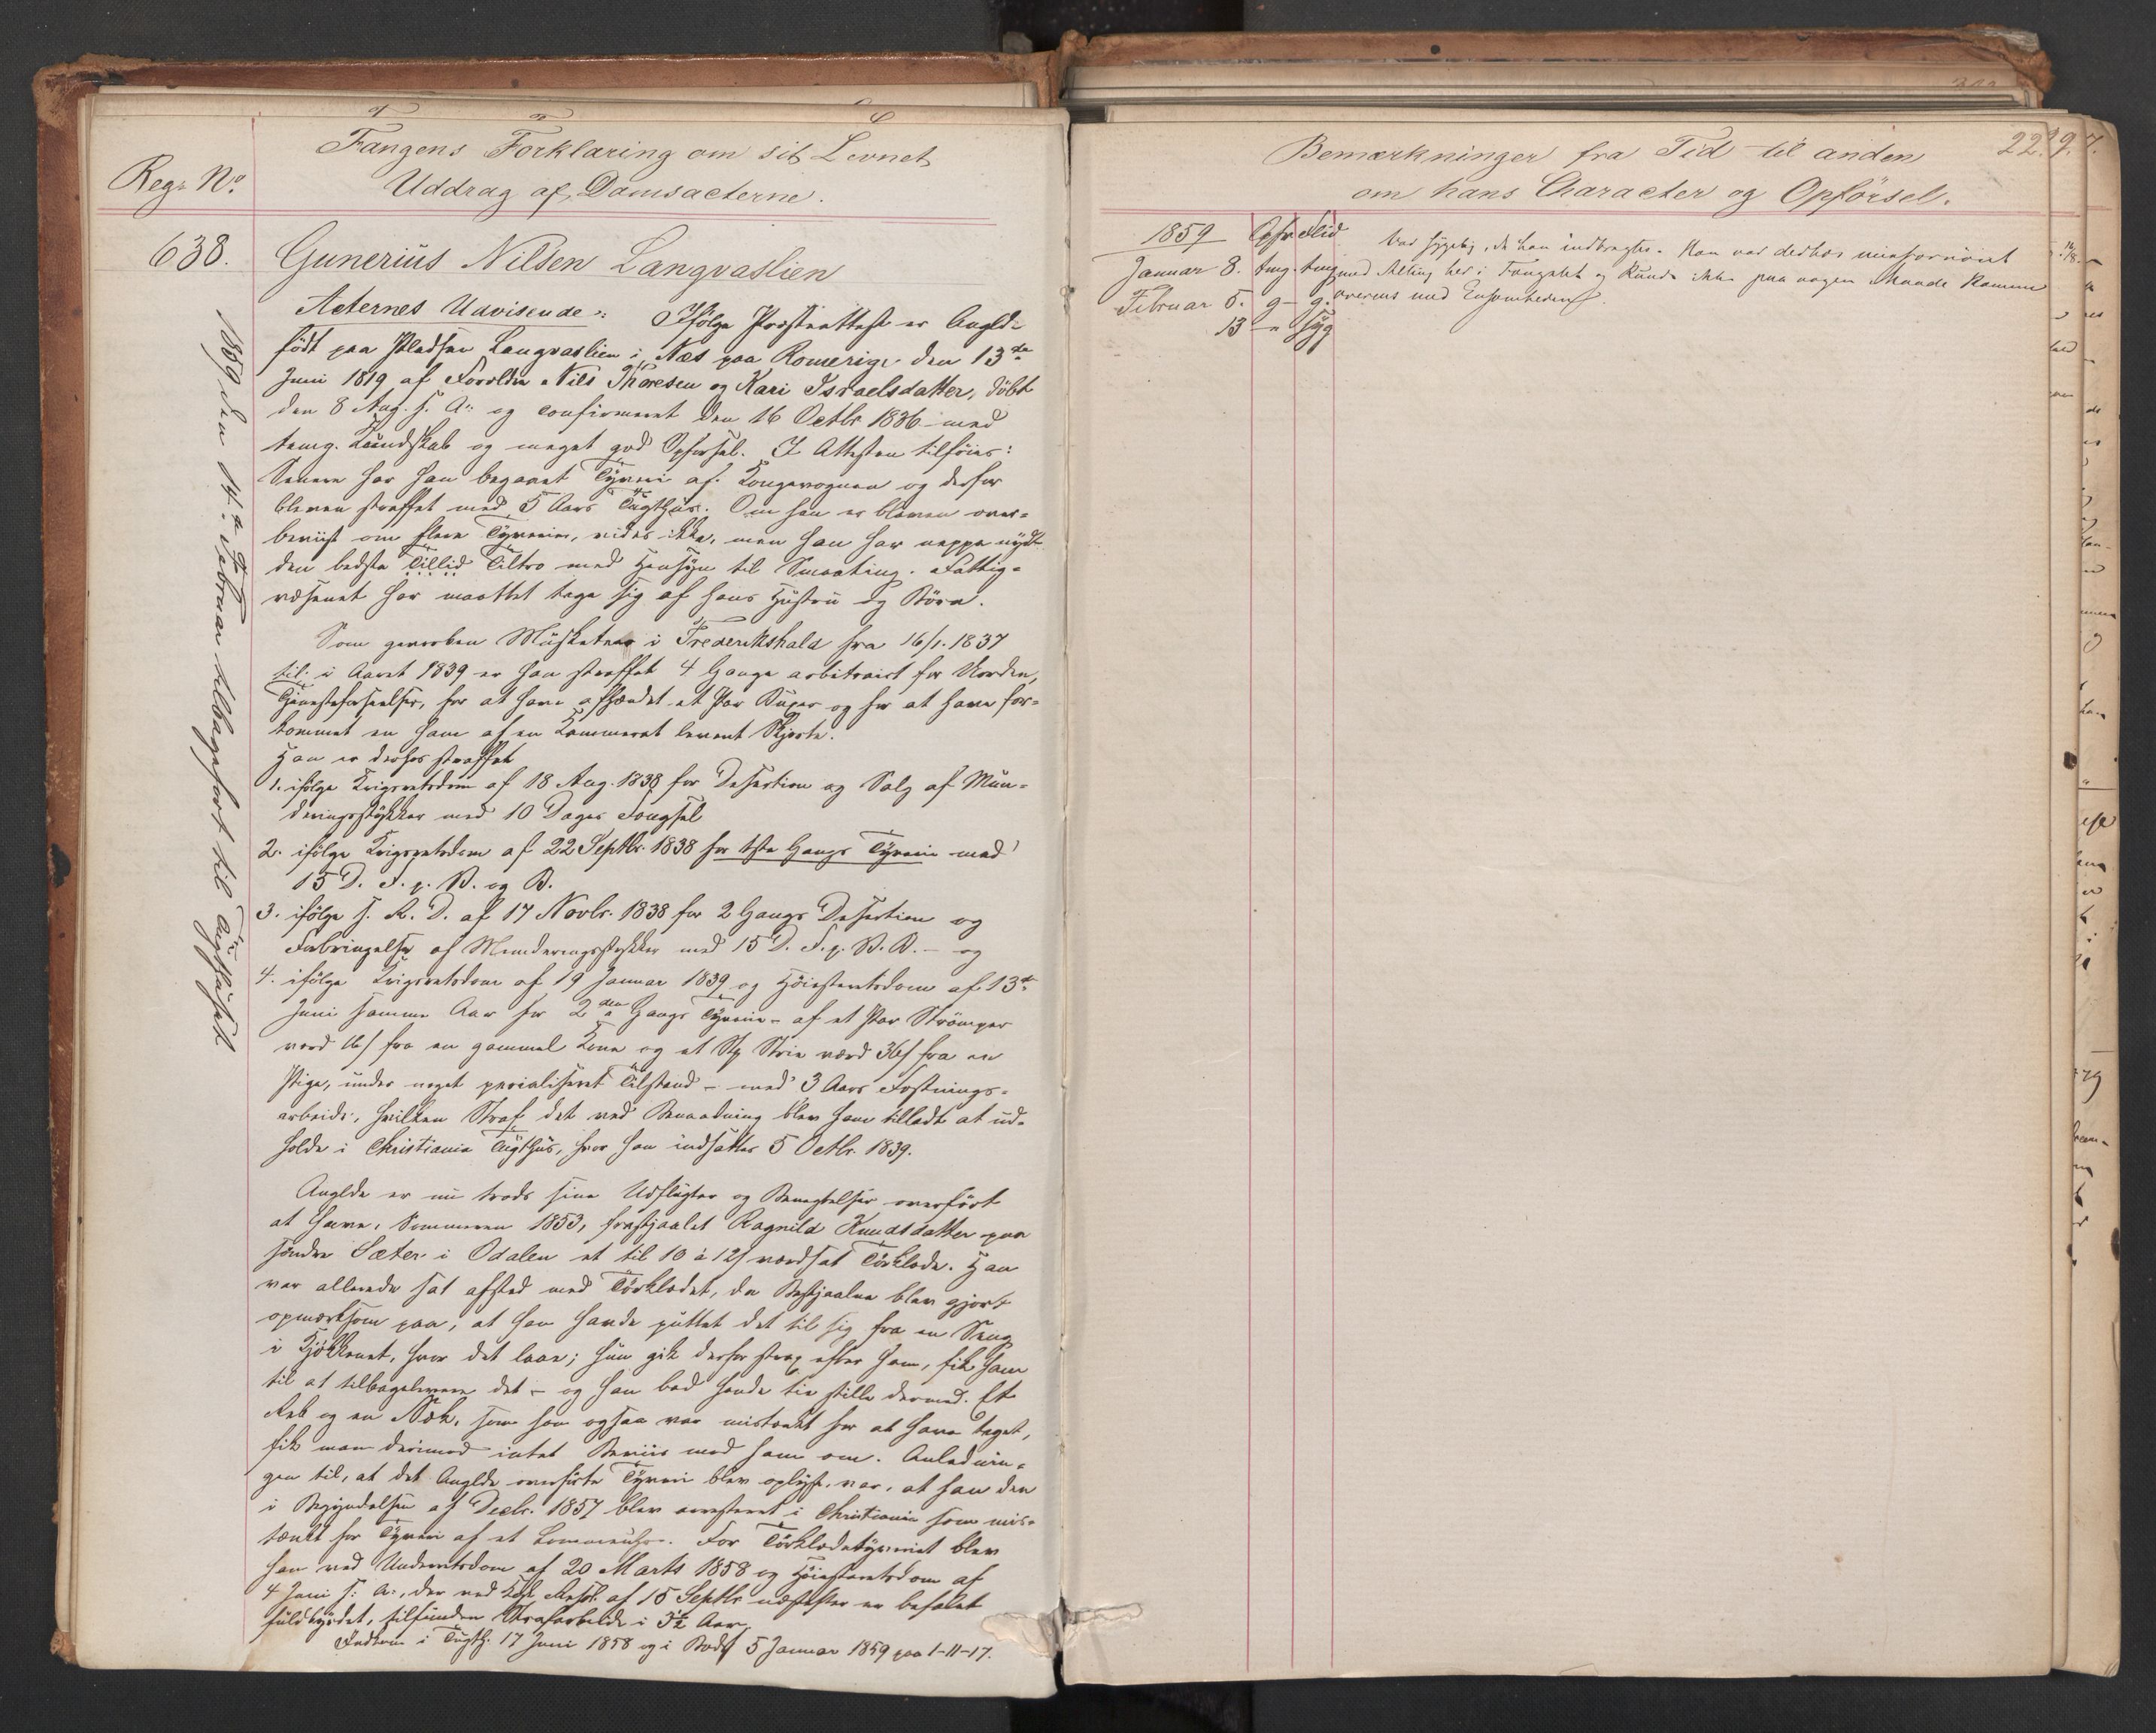 Fangens Forklaring om sit Levnet
Reg. No.
Uddrag af Domsacterne.
638.
Gunerius Nilsen Langvaslien
Acternes Udvisende: Ifølge Præsteattest er Anglde
født paa Pladsen Langvaslien i Næs paa Romerige den 13de
Juni 1819 af Forældre Nils Thoresen og Kari Israelsdatter, döbt
den 8 Aug. s. A. og confirmeret den 16 Octbr 1836 med
temg. Kundskab og meget god Opførsel. I Attesten tilföies:
Senere har han begaaet Tyveri af Kongevognen og derfor
bleven straffet med 5 Aars Tugthus. Om han er bleven over-
beviist om flere Tyverier, vides ikke, men han har neppe nydt
den bedste Tillid Tiltro med Hensyn til Smaating. Fattig-
væsenet har maattet tage sig af hans Hustru og Börn.
Som geworben Musketeer i Frederikshald fra 16/1. 1837
til i Aaret 1839 er han straffet 4 Gange arbitrairt for Uorden,
Tjenesteforseelser, for at have afhændet et Par Buxer og for at have for-
kommet en ham af en Kammerat leveret Skjorte.
Han er derhos straffet
1. ifølge Krigsretsdom af 18 Aug. 1838 for Desertion og Salg af Mun-
deringsstykker med 10 Dages Fængsel
2. ifölge Krigsretsdom af 22 Septbr. 1838 for 1ste Gangs Tyverie med
15 D. F. p. V. og B.
3. ifölge s. K. D. af 17 Novbr. 1838 for 2 Gangs Desertion og
Forbringelse af Munderingsstykker med 15 D. F. p. V. B. – og
4. ifölge Krigsretsdom af 19 Januar 1839 og Höiesteretsdom af 13de
Juni samme Aar for 2den Gangs Tyverie – af et Par Strömper
værd 16 ſ fra en gammel Kone og et Stp Strie værd 36 ſ fra en
Pige, under noget Tilstand – med 3 Aars Fæstnings-
arbeide, hvilken Straf det ved Benaadning blev ham tilladt at ud-
holde i Christiania Tugthus, hvor han indsattes 5 Octbr. 1839.
Anglde er nu trods sine Udflugter og Benegtelser overfört
at have, Sommeren 1853, frastjaalet Ragnild Knudsdatter paa
söndre Sæter i Odalen et til 10 à 12 ſ værdsat Törklæde. Han
var allerede sat afsted med Törklædet, da Bestjaalne blev gjort
opmærksom paa, at han havde puttet det til sig fra en Seng
i Kjökkenet, hvor det laae; hun gik derfor strax efter ham, fik ham
til at tilbagelevere det – og han bad hende tie stille dermed. Et
Reb og en Sæk, som han ogsaa var mistænkt for at have taget,
fik man derimod intet Beviis mod ham om. Anlednin-
gen til, at det Anglde overførte Tyveri blev oplyst, var, at han den
i Begyndelsen af Decbr. 1857 blev arresteret i Christiania som mis-
tænkt for Tyveri af et Lommeuhr. For Törklædetyveriet blev
han ved Underretsdom af 20 Marts 1858 og Höiesteretsdom af
4 Juni s. A., der ved Kgl. Resol. af 15 Septbr næstefter er befalet
fuldbyrdet, tilfunden Strafarbeide i 3½ Aar.
Indkom i Tugth. 17 Juni 1858 og i Bodsf 5 Januar 1859 paa 1-11-17.
1859 den 14de Februar tilbageført til Tugthuset
Bemærkninger fra Tid til anden
om hans Character og Opförsel.
229.
7.
1859 Opfør Flid
Januar 8. tmg. tmg
Februar 5. g – g.
13 – " Syg
Var sygelig, da han indbragtes. Han var derhos misfornöiet
med Alting her i Fængslet og kunde ikke paa nogen Maade komme
overens med Ensomheden.